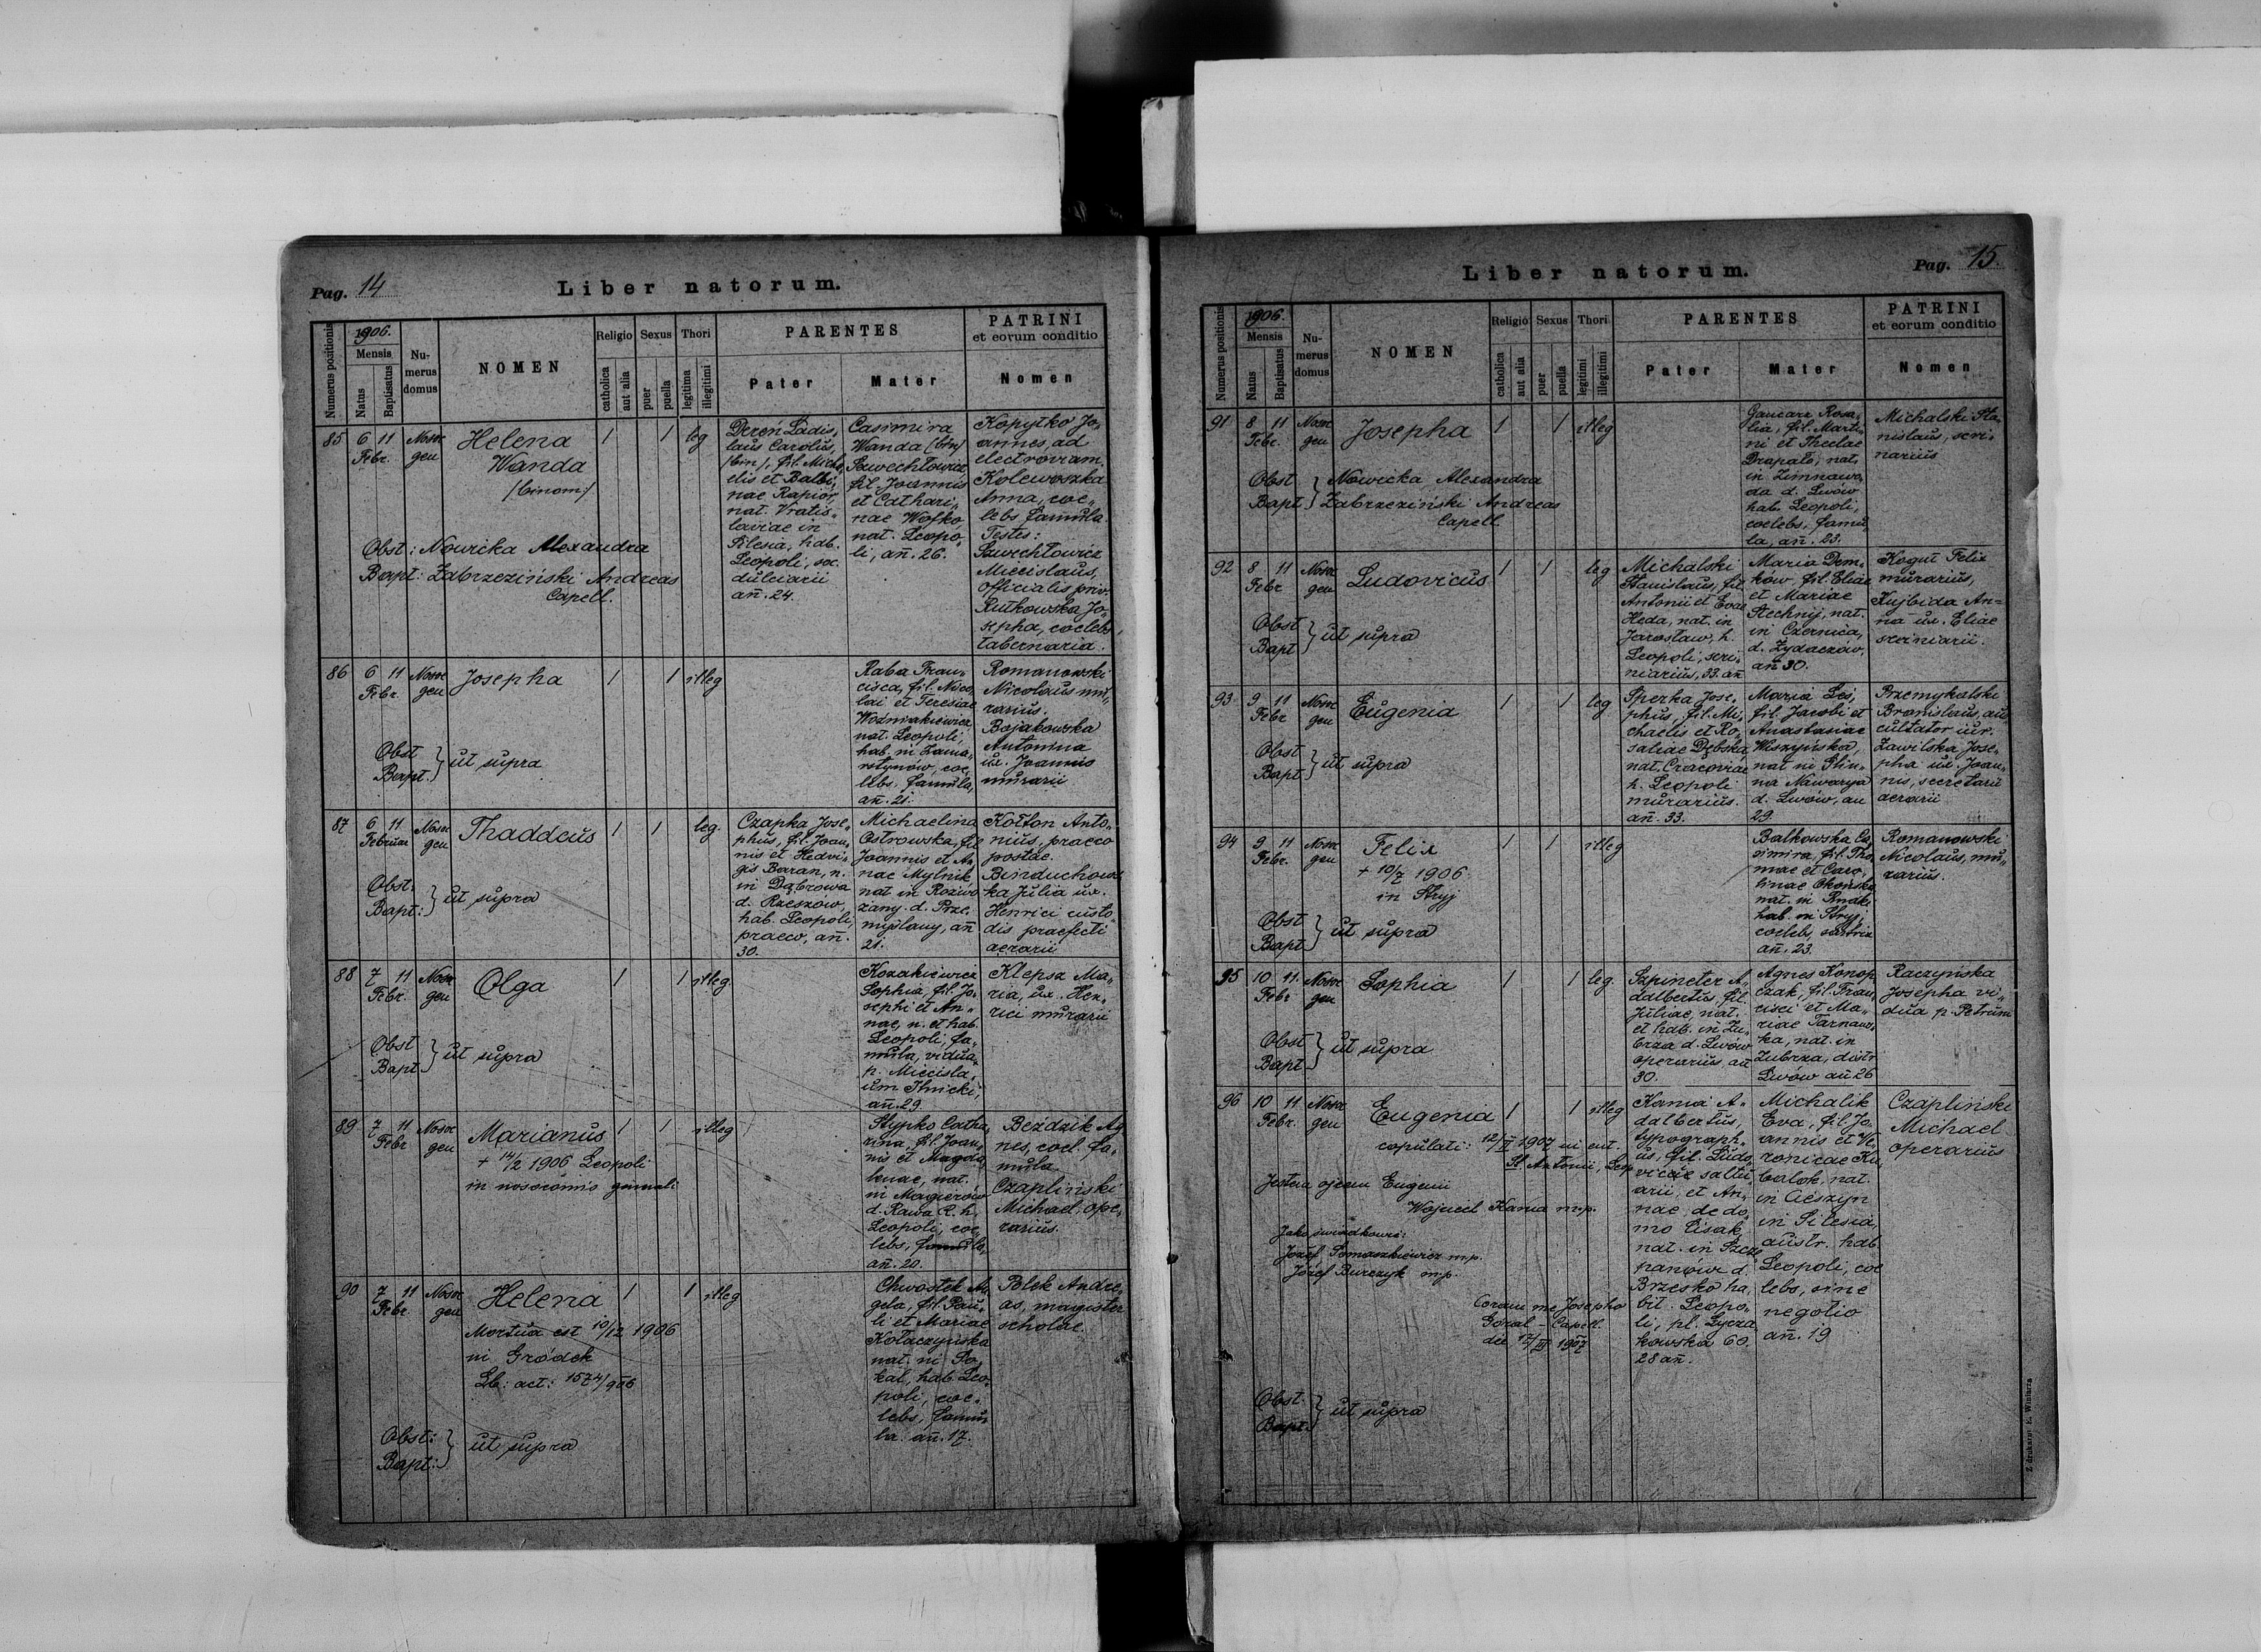 Pag. 14
Liber natorum.
Numerus positionis
1906.
Mensis
Natus
Baptisatus
Nu-
merus
domus
NOMEN
Religio
catholica
aut alia
Sexus
puer
puella
Thori
legitima
illegitimi
PARENTES
Pater
Mater
PATRINI
et eorum conditio
Nomen
85
6 11
Febr.
Nosoc
gen
Helena
Wanda
/binom/
1
1
leg
Dereń Ladis„
laus Carolus,
/bin/, fil. Micha„
elis et Balbi„
nae Rapior,
nat. Vratis„
laviae in
Silesia, hab.
Leopoli, soc.
dulciarii
añ. 24.
Casimira
Wanda (bin)
Pawechłowicz
fil. Joannis
et Cathari„
nae Wofko,
nat. Leopo„
li, añ. 26.
Kopytko Jo„
annes, ad
electroviam.
Kolewoszka
Anna, coe„
lebs famula.
Testes:
Pawechłowicz
Miecislaus,
officialis priv.
Rutkowska Jo„
sepha, coelebs,
tabernaria.
Obst: Nowicka Alexandra
Bapt: Zabrzeziński Andreas
Capell.
86
6 11
Febr.
Nosoc
gen
Josepha
1
1
illeg
Raba Fran„
cisca, fil. Nico„
lai et Teresiae
Woźniakiewicz
nat. Leopoli,
hab. in Zama„
rstynów, coe„
lebs, famula,
añ. 21.
Romanowski
Nicolaus mu„
rarius.
Bojakowska
Antonina
ux. Joannis
murarii
Obst
Bapt. } ut supra
87
6 11
Februar
Nosoc
gen
Thaddeus
1
1
leg.
Czapka Jose„
phus, fil. Joan„
nis et Hedvi„
gis Baran, n.
in Dąbrowa
d. Rzeszów,
hab. Leopoli,
praeco, añ.
30.
Michaelina
Ostrowska, fil
Joannis et An
nae Mylnik
nat in Rozwo
rzany. d. Prze„
myślany, añ
21.
Kołton Anto„
nius, praeco
postae.
Benduchows
ka Julia ux.
Henrici custo„
dis praefecti
aerarii
Obst:
Bapt: } ut supra
88
7 11
Febr.
Nosoc
gen
Olga
1
1
illeg
Kozakiewicz
Sophia, fil. Jo„
sephi et An„
nae, n. et hab.
Leopoli, fa„
mula, vidua
p. Miecisla„
um Ilnicki,
añ. 29.
Klepsz Ma„
ria, ux. Hen„
rici murarii
Obst
Bapt } ut supra
89
7 11
Febr
Nosoc
gen
Marianus
+ 14/2 1906 Leopoli
in nosocomio generali
1
1
illeg
Stypko Catha„
rina, fil. Joan„
nis et Magda„
lenae, nat.
in Magierów
d. Rawa R. h.
Leopoli, coe„
lebs, famula,
añ. 20.
Beździk Ag
nes, coel. fa„
mula.
Czapliński
Michael, ope„
rarius.
90
7 11
Febr
Nosoc
gen
Helena
Mortua est 10/12 1906
in Gródek
Lb: act: 1574/906
1
1
illeg
Chwostek An
gela, fil. Pau„
li et Mariae
Kołaczyńska
nat. in So„
kal, hab. Leo„
poli, coe„
lebs, famu
la. añ. 17.
Blek Andre„
as, magister
scholae
Obst:
Bapt: } ut supra
Liber natorum.
Pag. 15.
Numerus positionis
1906.
Mensis
Natus
Baptisatus
Nu-
merus
domus
NOMEN
Religio
catholica
aut alia
Sexus
puer
puella
Thori
legitimi
illegitimi
PARENTES
Pater
Mater
PATRINI
et eorum conditio
Nomen
91
8 11
Febr.
Nosoc
gen
Josepha
1
1
illeg
Gancarz Rosa„
lia, fil. Marti„
ni et Theclae
Drapało, nat.
in Zimnawo„
da d. Lwów
hab. Leopoli,
coelebs, famu„
la, añ. 23.
Michalski Sta„
nislaus, scri„
narius
Obst
Bapt } Nowicka Alexandra
Zabrzeziński Andreas
Capell
92
8 11
Febr
Nosoc
gen
Ludovicus
1
1
leg
Michalski
Stanislaus, fil.
Antonii et Evae
Heda, nat. in
Jarosław, h.
Leopoli, scri„
niarius, 33. añ
Maria Dem„
ków, fil. Eliae
et Mariae
Stechnij, nat.
in Czernica,
d. Żydaczów,
añ 30.
Kogut Felix
murarius,
Kujbida An=
na ux. Eliae
scriniarii.
Obst
Bapt } ut supra
93
9 11
Febr
Nosoc
gen
Eugenia
1
1
leg
Sperka Jose„
phus, fil. Mi„
chaelis et Ro„
saliae Dębska,
nat. Cracoviae
h. Leopoli
murarius.
añ. 33.
Maria Leś,
fil. Jacobi et
Anastasiae
Wiszyńska,
nat in Glin„
na Nawarya
d. Lwów, añ
29.
Przemykalski
Bronislaus, aus
cultator iur.
Zawilska Jose„
pha ux. Joan„
nis, secretarii
aerarii
Obst
Bapt } ut supra
94
9 11
Febr.
Nosoc
gen
Felix
+ 10/7 1906
in Stryj
1
1
illeg
Balkowska Ca
simira, fil. Tho„
mae et Caro„
linae Okońska
nat. in Smdki
hab. in Stryj,
coelebs, sartrix
añ. 23.
Romanowski
Nicolaus, mu„
rarius.
Obst
Bapt } ut supra
95
10 11.
Febr
Nosoc
gen
Sophia
1
1
leg.
Szpineter A„
dalbertus, fil.
Juliae, nat.
et hab. in Zu„
brza d. Lwów
operarius, añ
30.
Agnes Konop
czak, fil. Fran„
cisci et Ma„
riae Tarnaws„
ka, nat. in
Zubrza, distr.
Lwów añ 26
Raczyńska
Josepha vi„
dua p. Petrum
Obst
Bapt } ut supra
96
10 11
Febr.
Nosoc
gen
Eugenia
copulati: 12/II 1907 in ecct.
St. Antonii, Leop
Jestem ojcem Eugenii
Wojciech Kania mp.
Jako świadkowie:
Józef Tomaszkiewicz mp.
Józef Burczyk mp.
Coram me Josepho
Góral – Capell.
die 12/III 1907
1
1
illeg
Kania A„
dalbertus,
typograph„
us, fil. Ludo
vicae saltu„
arii, et An„
nae de do„
mo Cisak,
nat. in Szcze
panów d.
Brzesko ha„
bit. Leopo„
li, pl. Łycza
kowska 60.
28 añ.
Michalik
Eva, fil. Jo„
annis et Ve„
ronicae Ku„
balok, nat.
in Cieszyn
in Silesia,
austr. hab.
Leopoli, coe
lebs, sine
negotio
añ. 19
Czapliński
Michael
operarius
Obst.
Bapt. } ut supra
Z drukarni E. Winiarza